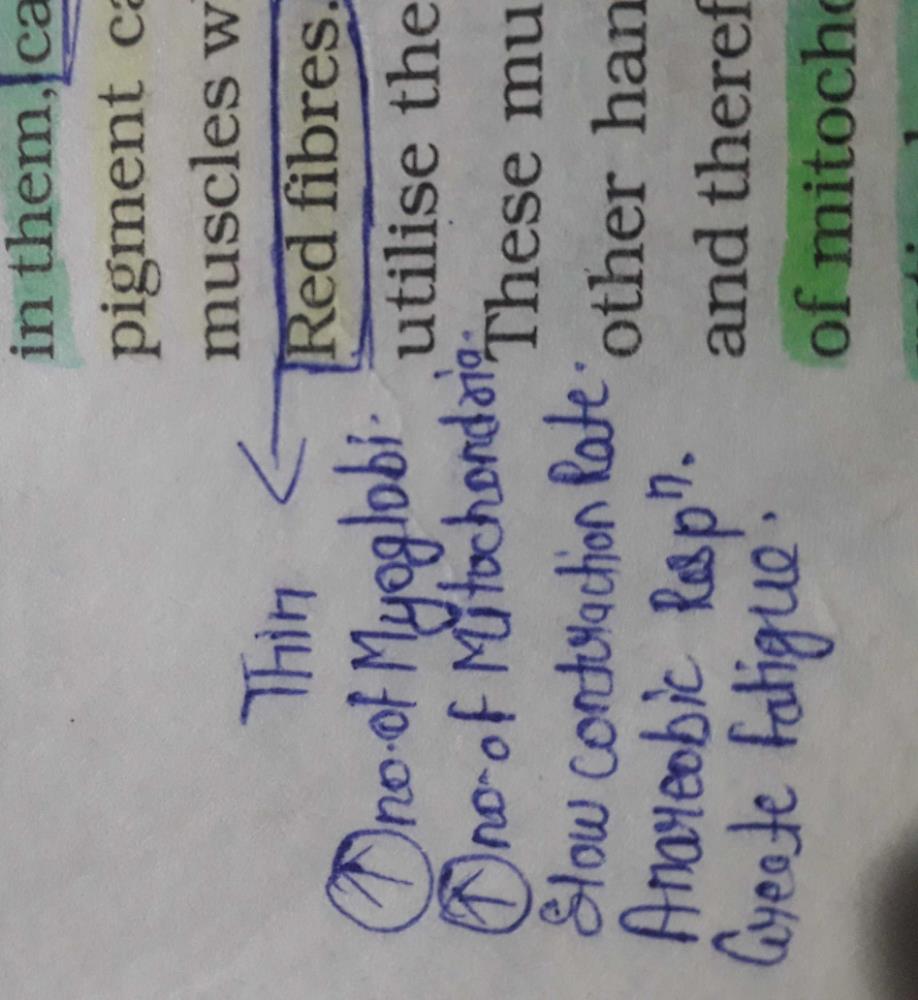 in them, ca
pigment ca
muscles w
Red fibres.
utilise the
These mu
other han
and theref
of mitocho
Thin
↑ no. of Myoglobi.
↑ no. of Mitochondria.
Slow contraction Rate.
Anareobic Respⁿ.
Create fatigue.